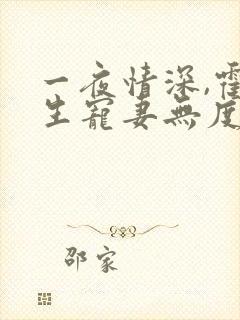 一夜情深,霍
生寵妻無度
邵家